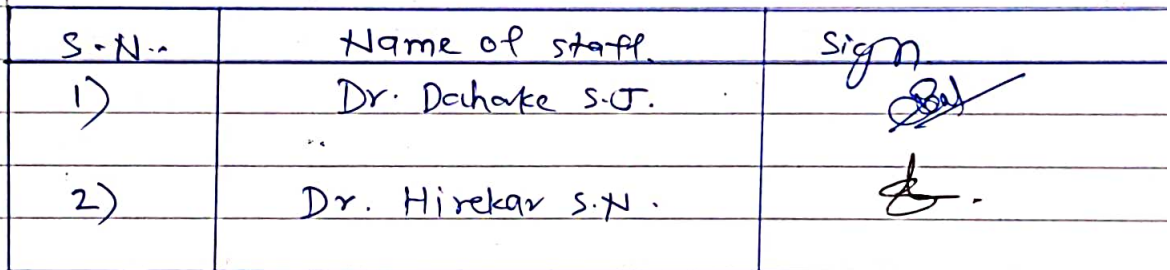 S.N. Name of staff. Sign
1) Dr. Dahake S.J.
2) Dr. Hirekar S.N.